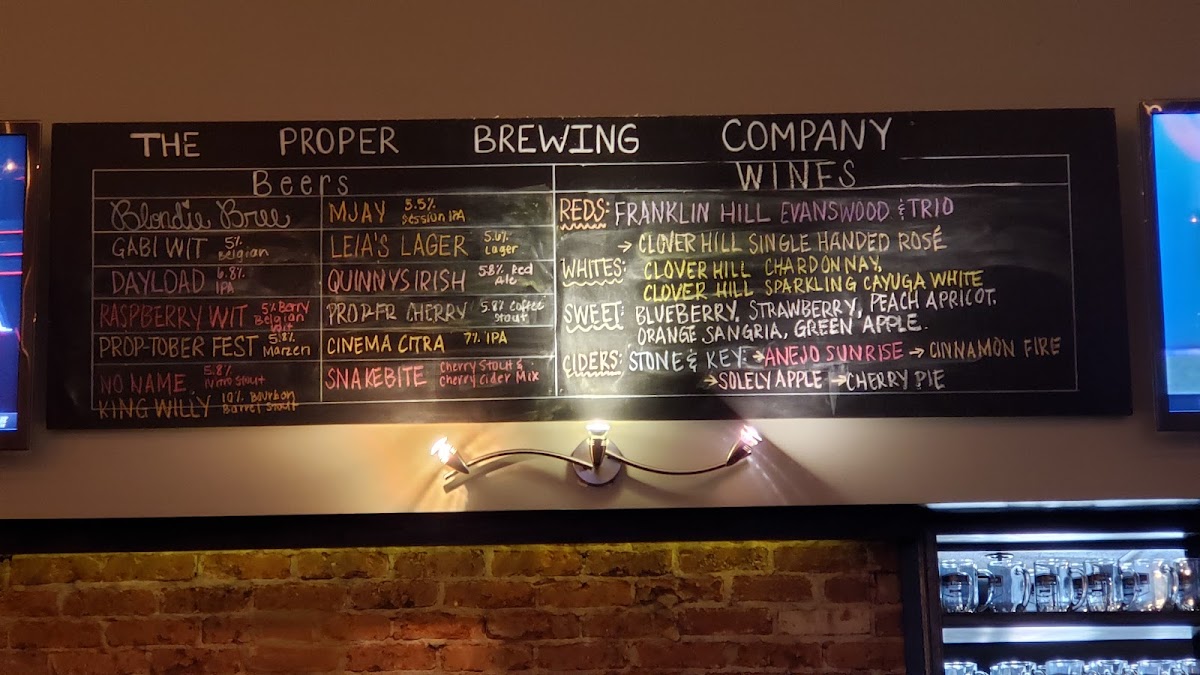 THE PROPER BREWING COMPANY
Beers
Blondie Bree
GABI WIT 5% Belgian
DAYLOAD 6.8% IPA
RASPBERRY WIT 5% Berry Belgian Wit
PROP-TOBER FEST 5.8% Marzen
NO NAME 5.8% Nitro Stout
KING WILLY 10% Bourbon Barrel Stout
MJAY 5.5% Session IPA
LEIA'S LAGER 5.6% Lager
QUINNYS IRISH 5.8% Red Ale
PROPER CHERRY 5.8% Coffee Stout
CINEMA CITRA 7% IPA
SNAKEBITE Cherry Stout & cherry cider Mix
WINES
REDS: FRANKLIN HILL EVANSWOOD & TRIO
→ CLOVER HILL SINGLE HANDED ROSÉ
WHITES: CLOVER HILL CHARDONNAY,
CLOVER HILL SPARKLING CAYUGA WHITE
SWEET: BLUEBERRY, STRAWBERRY, PEACH APRICOT,
ORANGE SANGRIA, GREEN APPLE.
CIDERS: STONE & KEY: → ANEJO SUNRISE → CINNAMON FIRE
→ SOLELY APPLE → CHERRY PIE